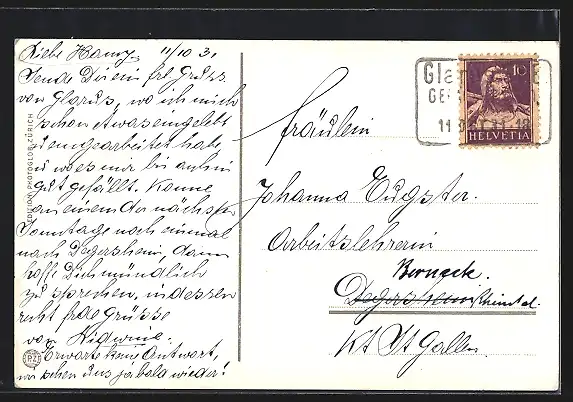 Liebe Hanny. 11/10 31
Sende Dir ein frl. Gruss
von Glarus, wo ich mich
schon etwas eingelebt
u. eingearbeitet habe,
u. wo es mir bis anhin
gut gefällt. Komme
an einem der nächsten
Sonntage noch einmal
nach Degersheim, dann
hoffe Dich mündlich
zu sprechen, indessen
recht frohe Grüsse
von
Erwarte keine Antwort,
wir sehen uns ja bald wieder!
EDITION PHOTOGLOB ZÜRICH
Gla
GE
11
18
10
HELVETIA
Fräulein
Johanna Eugster.
Arbeitslehrerin
Berneck.
Degersheim Rheintal.
Kt. St. Gallen